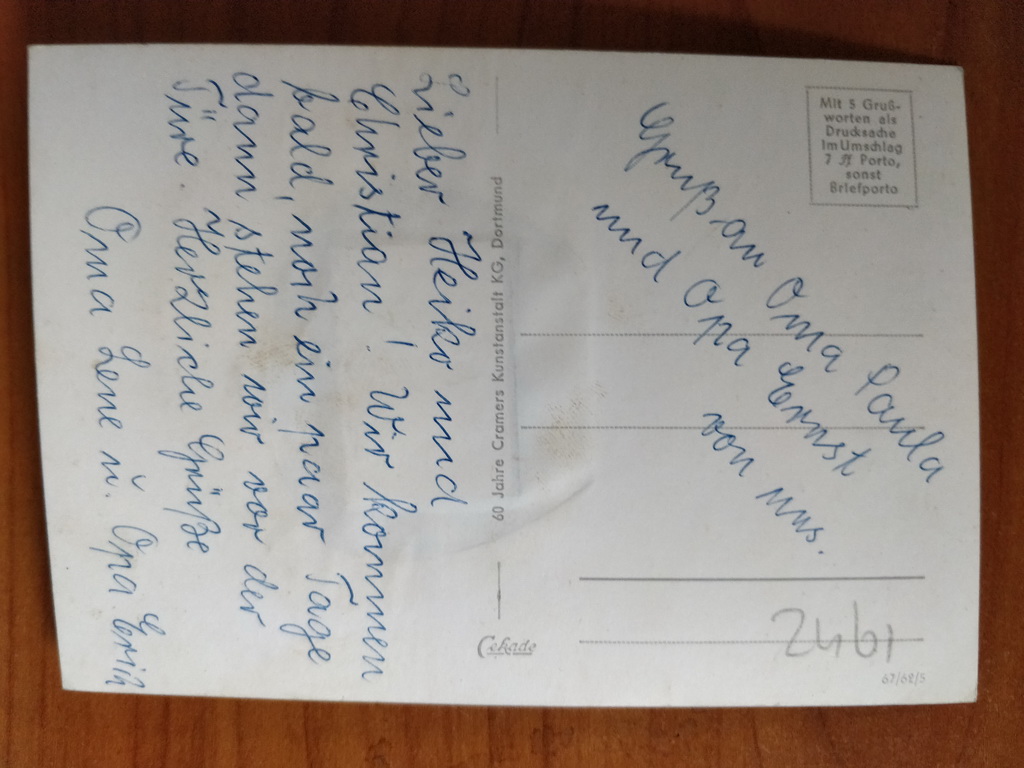 Lieber Heiko und
Christian! Wir kommen
bald, noch ein paar Tage
dann stehen wir vor der
Türe. Herzliche Grüße
Oma Lene u. Opa Erich
60 Jahre Cramers Kunstanstalt KG, Dortmund
Cekade
Mit 5 Gruß-
worten als
Drucksache
im Umschlag
7 ₰ Porto,
sonst
Briefporto
Gruß an Oma Paula
und Opa Ernst
von uns.
67/68/5